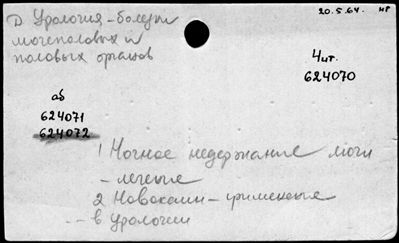 D Урология-болезни
мочеполовых и
половых органов
20.5.64. нг
Чит.
624070
аб
624071
624072
1 Ночное недержание мочи
- лечение
2 Новокаин - применение
-- в урологии